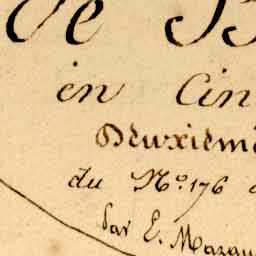 de
en Cin
Deuxième
du No. 176
Par E. Mazau